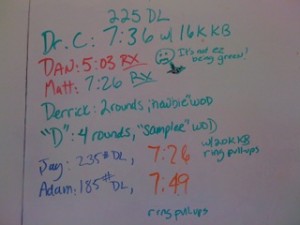 225 DL
Dr. C: 7:36 w/ 16K KB
It's not ez being green!
DAN: 5:03 RX
Matt: 7:26 RX
Derrick: 2 rounds, "newbie" WOD
"D": 4 rounds, "Sample" WOD
Jay: 235# DL, 7:26 w/ 20K KB ring pullups
Adam: 185# DL, 7:49
ring pullups